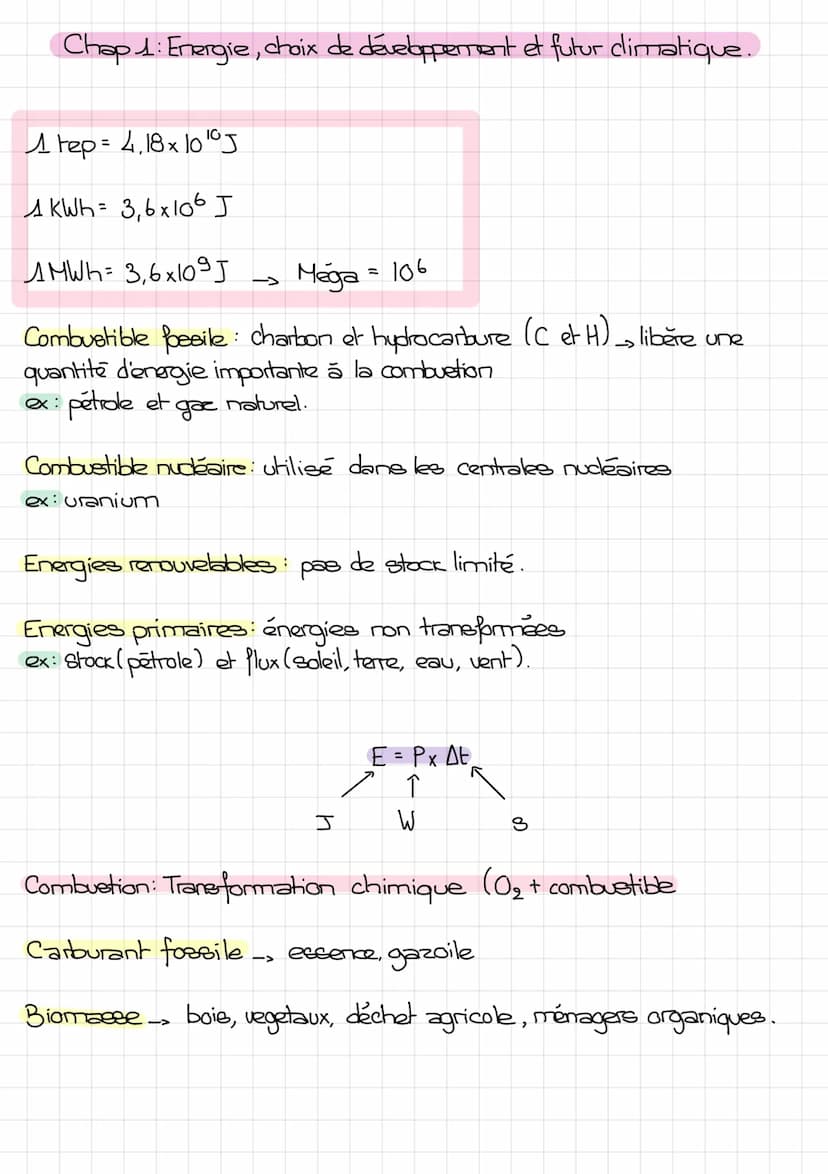 Chap 1: Energie, choix de développement et futur climatique.
1 tep = 4,18 x 10¹⁰ J
1 KWh = 3,6 x 10⁶ J
1 MWh = 3,6 x 10⁹ J → Méga = 10⁶
Combustible fossile : charbon et hydrocarbure (C et H) → libère une
quantité d'énergie importante à la combustion
ex : pétrole et gaz naturel.
Combustible nucléaire : utilisé dans les centrales nucléaires
ex : uranium
Energies renouvelables : pas de stock limité.
Energies primaires : énergies non transformées
ex : Stock (pétrole) et flux (soleil, terre, eau, vent).
E = P x Δt
J W s
Combustion : Transformation chimique (O₂ + combustible
Carburant fossile → essence, gazoile
Biomasse → bois, vegetaux, déchet agricole, ménagers organiques.